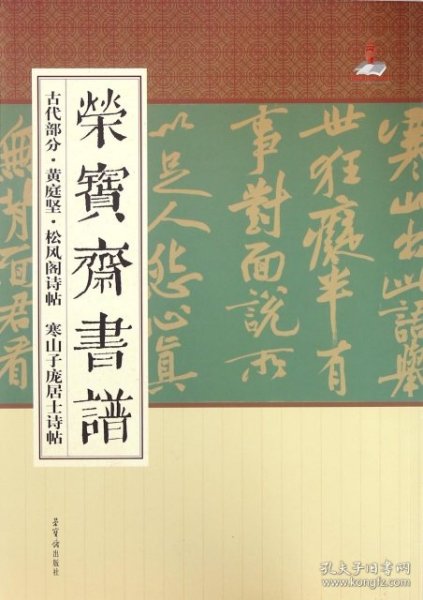 榮寶齋書譜
古代部分·黄庭坚·松风阁诗帖 寒山子庞居士诗帖
寒山出此語舉
世狂癡半有
事對面説所
以足人怨心真
無背面君看
荣宝斋出版社
孔夫子旧书网
www.kongfz.com